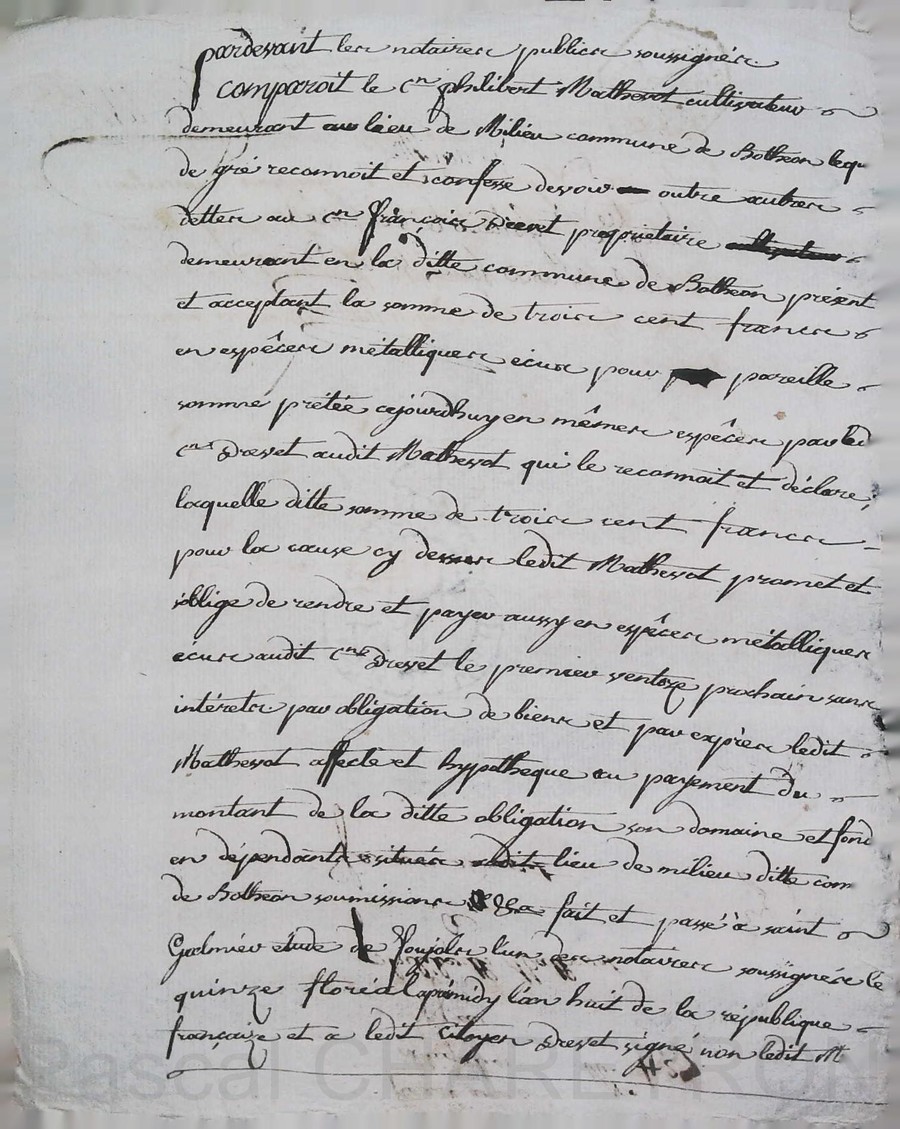 pardevant les notaires publics soussignés
comparoit le cn philibert Mathevot cultivateur
demeurant au lieu de Milieu commune de Botheon lequ
de gré reconnoit et confesse devoir outre autres
dettes au cn françois Drevet proprietaire
demeurant en la ditte commune de Botheon présent
et acceptant la somme de trois cent francs
en espêces métalliques écus pour pareille
somme prétée cejourdhuy en mêmes espêces par led
cn Drevet audit Mathevot qui le reconnoit et déclare,
laquelle ditte somme de trois cent francs
pour la cause cy dessus ledit Mathevot promet et
oblige de rendre et payer aussy en espêces métalliques
écus audit cn Drevet le premier ventoze prochain sans
intérets par obligation de biens et par exprès ledit
Mathevot affecte et hypotheque au payement du
montant de la ditte obligation son domaine et fond
en dépendants situés lieu de milieu ditte com
de Botheon soumissions fait et passé à saint
Galmier etude de l'un des notaires soussignés le
quinze floréal apmidy l'an huit de la république
françaize et a ledit citoyen Drevet signé non ledit M
Pascal CHARETRON